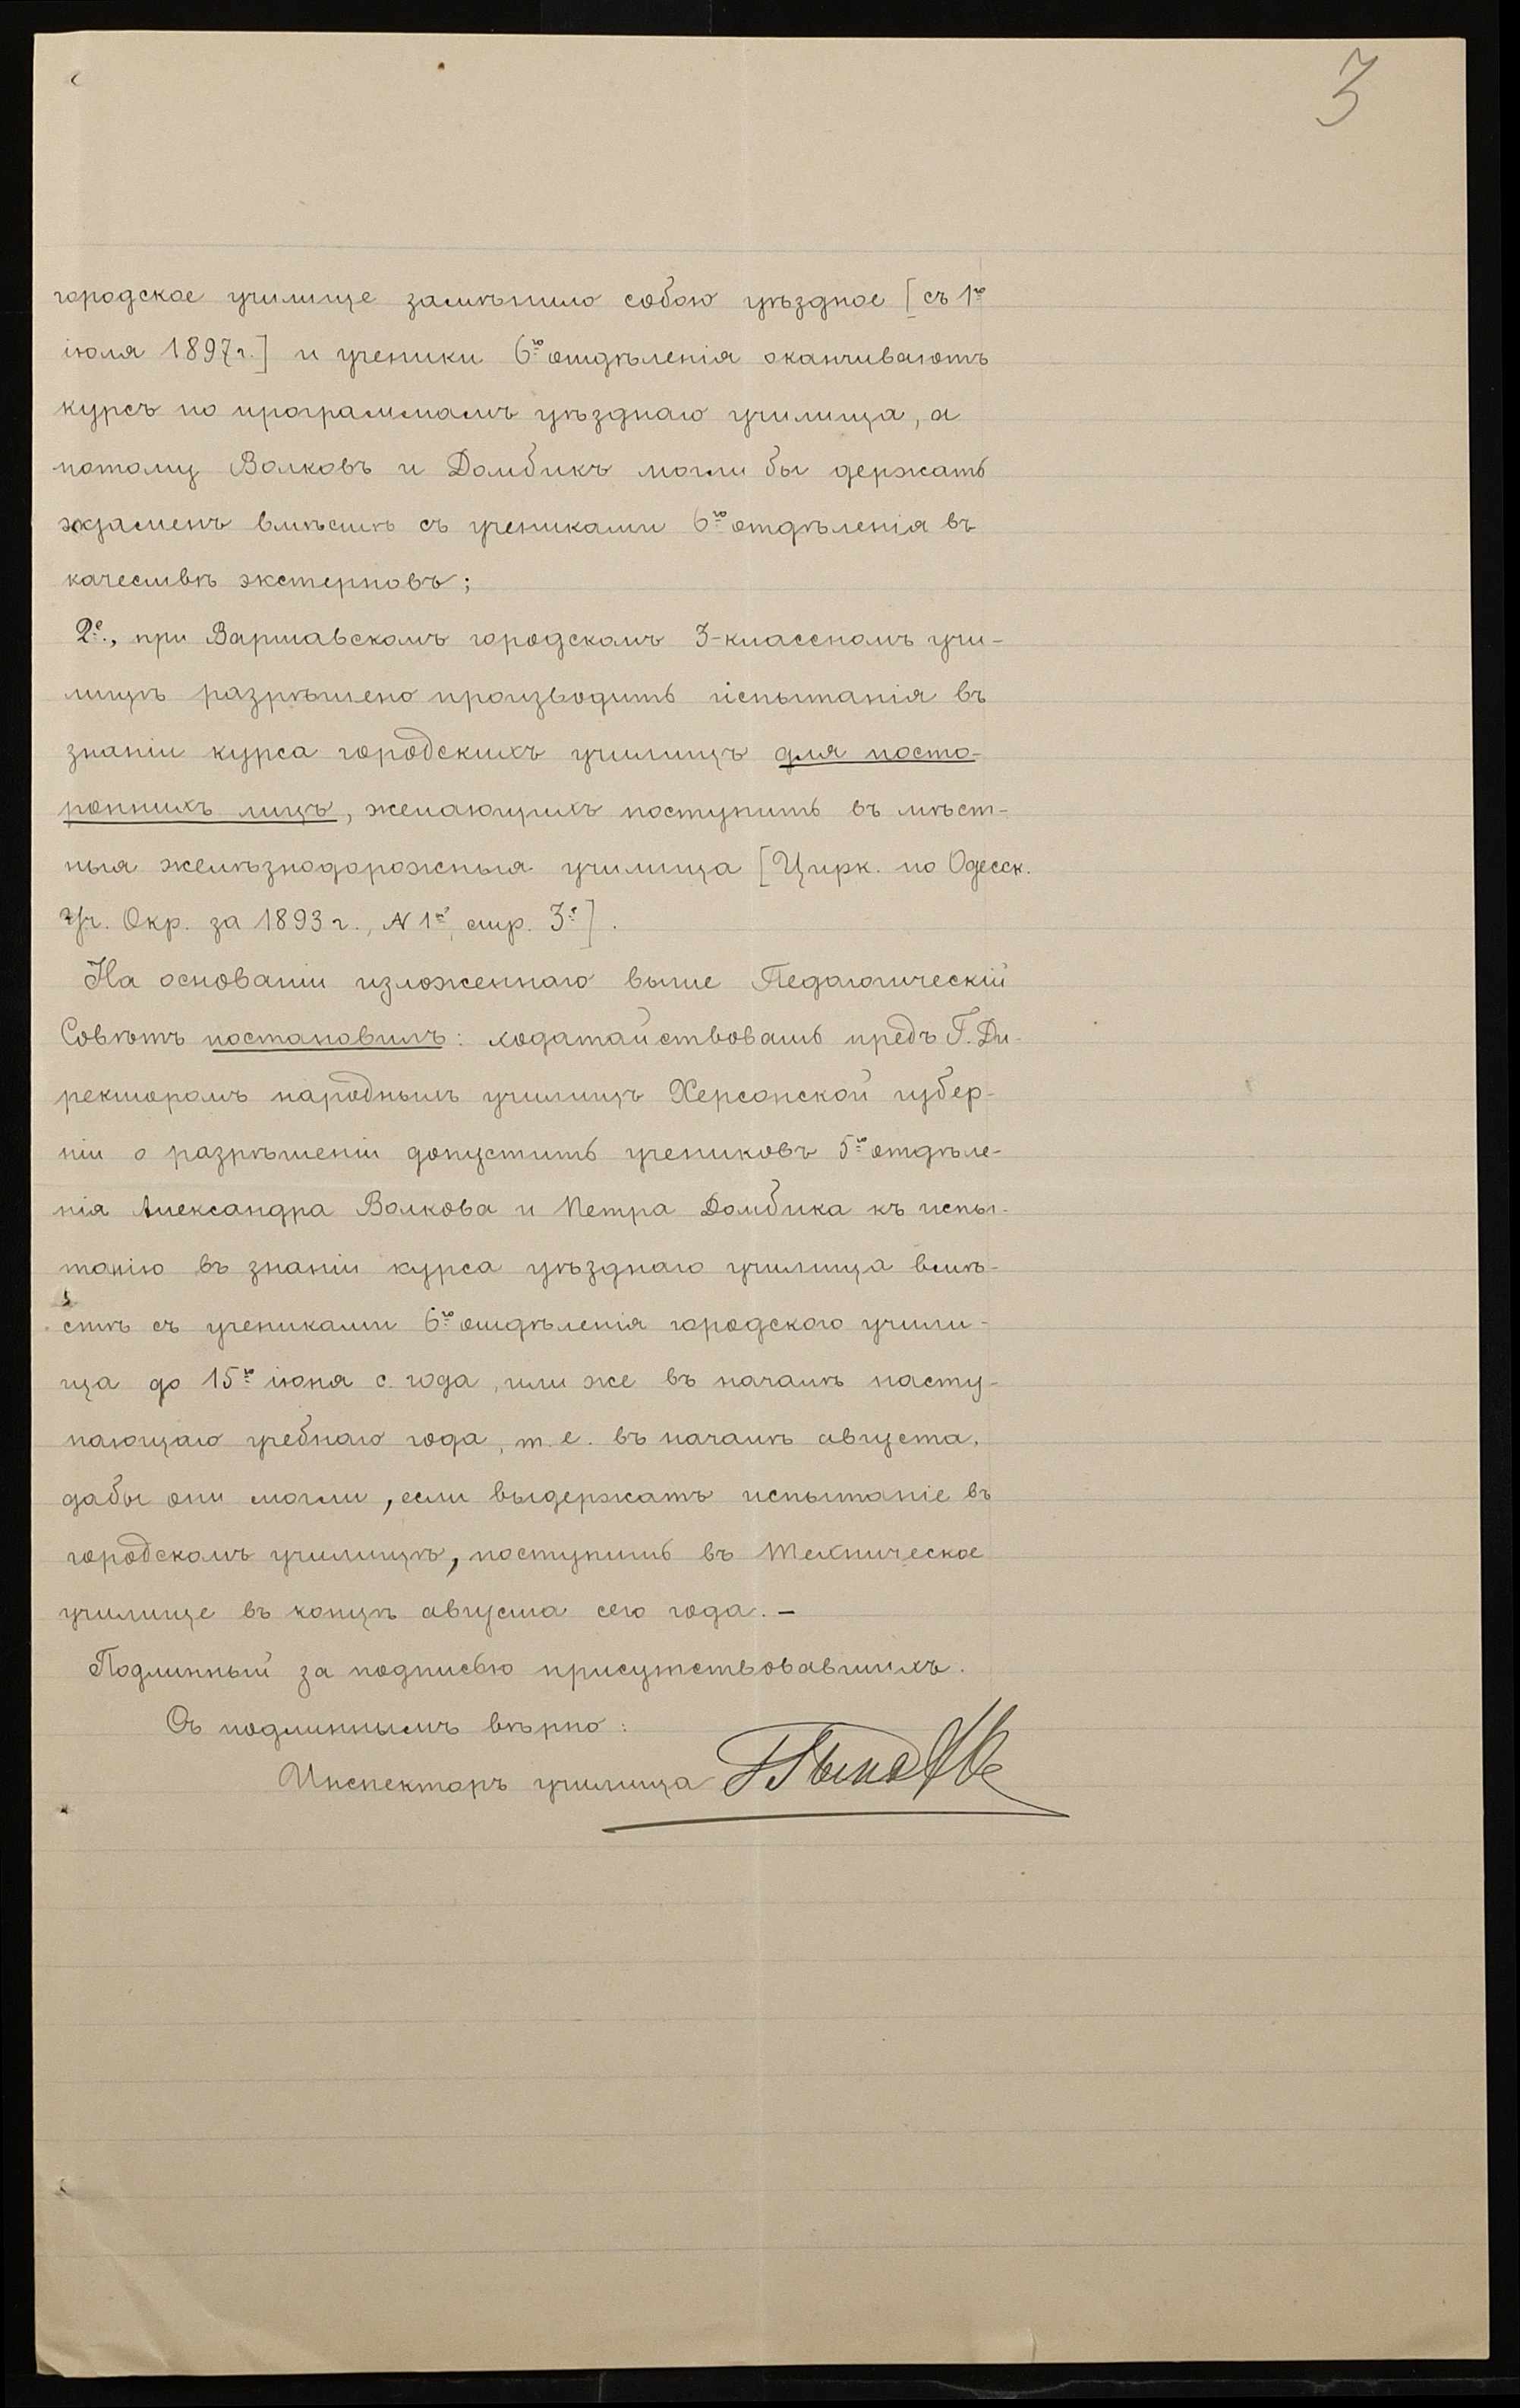 3
городское училище замѣнило собою уѣздное [съ 1го
іюля 1897 г.] и ученики 6го отдѣленія оканчиваютъ
курсъ по программамъ уѣзднаго училища, а
потому Волковъ и Домбикъ могли бы держать
экзаменъ вмѣстѣ съ учениками 6го отдѣленія въ
качествѣ экстерновъ;
2е., при Варшавскомъ городскомъ 3-классномъ учи-
лищѣ разрѣшено производить испытанія въ
знаніи курса городскихъ училищъ для посто-
роннихъ лицъ, желающихъ поступить въ мѣст-
ныя желѣзнодорожныя училища [Цирк. по Одесск.
Уч. Окр. за 1893 г., N 1й, стр. 3я].
На основаніи изложеннаго выше Педагогическій
Совѣтъ постановилъ: ходатайствовать предъ Г. Ди-
ректоромъ народныхъ училищъ Херсонской губер-
ніи о разрѣшеніи допустить учениковъ 5го отдѣле-
нія Александра Волкова и Петра Домбика къ испы-
танію въ знаніи курса уѣзднаго училища вмѣ-
стѣ съ учениками 6го отдѣленія городского учили-
ща до 15го іюня с. года, или же въ началѣ насту-
пающаго учебнаго года, т. е. въ началѣ августа,
дабы они могли, если выдержатъ испытаніе въ
городскомъ училищѣ, поступить въ техническое
училище въ концѣ августа сего года. –
Подлинный за подписью присутствовавшихъ.
Съ подлиннымъ вѣрно:
Инспекторъ училища